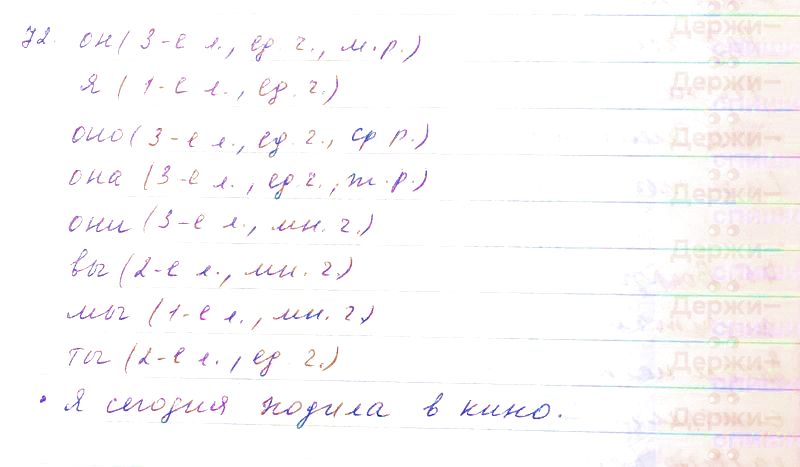 72. он (3-е л., ед. ч., м. р.)
я (1-е л., ед. ч.)
оно (3-е л., ед. ч., ср р.)
она (3-е л., ед. ч., ж. р.)
они (3-е л., мн. ч.)
вы (2-е л., мн. ч.)
мы (1-е л., мн. ч.)
ты (2-е л., ед ч.)
• Я сегодня ходила в кино.
Держи–
списы
Держи–
списы
Держи–
списы
Держи–
Держи–
списы
Держи–
списы
Держи–
списы
Держи–
списы
Держи–